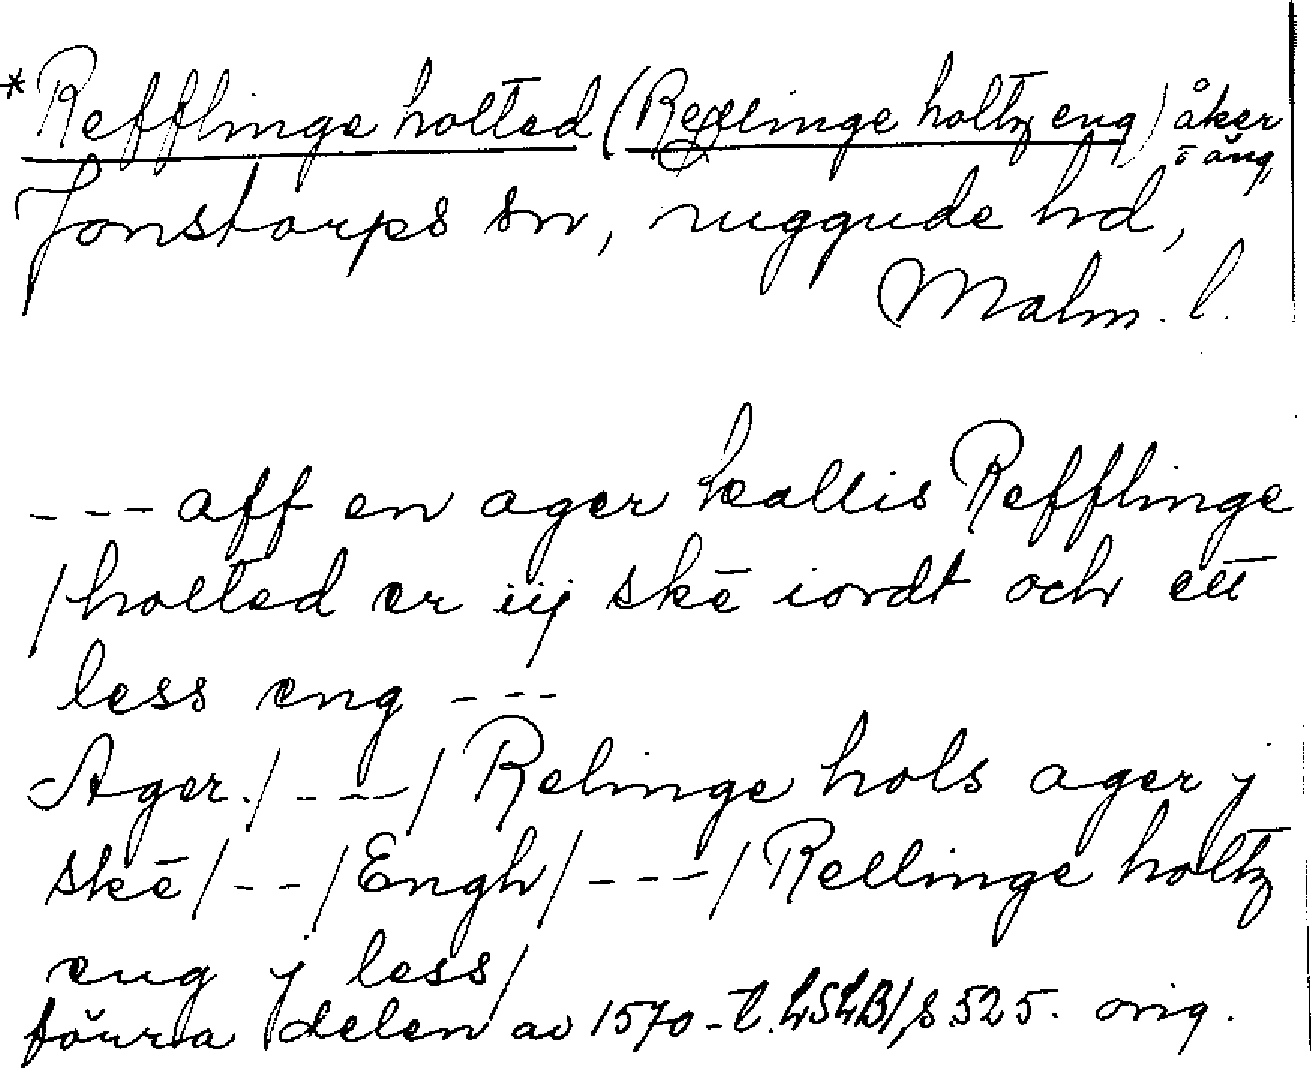 *Refflinge holted (Rellinge holtz eng) åker
o äng
Jonstorps sn, Luggude hd,
Malm. l.
--- aff en ager kallis Refflinge
/holted er iij skē iordt och ett
less eng ---
Ager./---/Relinge hols ager j
skē/--/Engh/---/Rellinge holtz
eng j less/
förra delen av 1570-t. LSLB/s.525. orig.